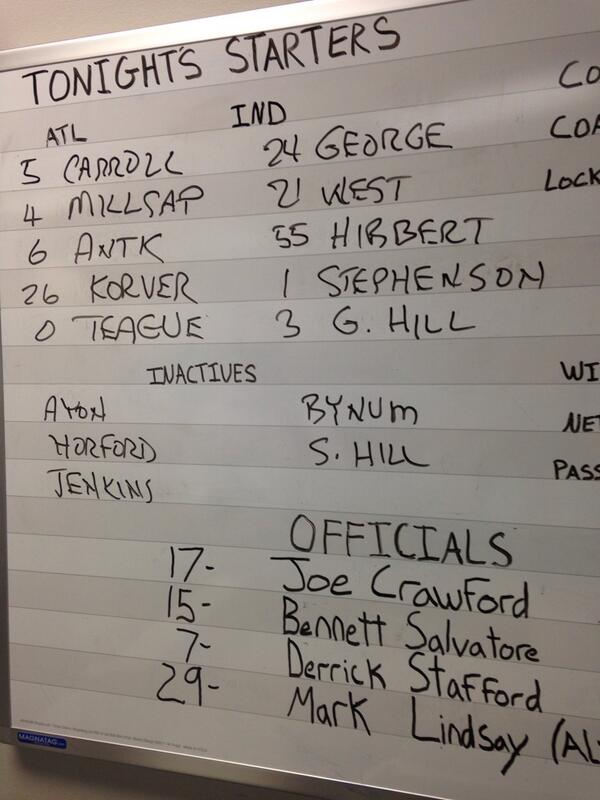 TONIGHT'S STARTERS
ATL IND CO
5 CARROLL 24 GEORGE COA
4 MILLSAP 21 WEST LOCK
6 ANTK 55 HIBBERT
26 KORVER 1 STEPHENSON
0 TEAGUE 3 G. HILL
INACTIVES WI
AYON BYNUM NET
HORFORD S. HILL PASS
JENKINS
OFFICIALS
17- Joe Crawford
15- Bennett Salvatore
7- Derrick Stafford
29- Mark Lindsay (AL
MAGNATAG